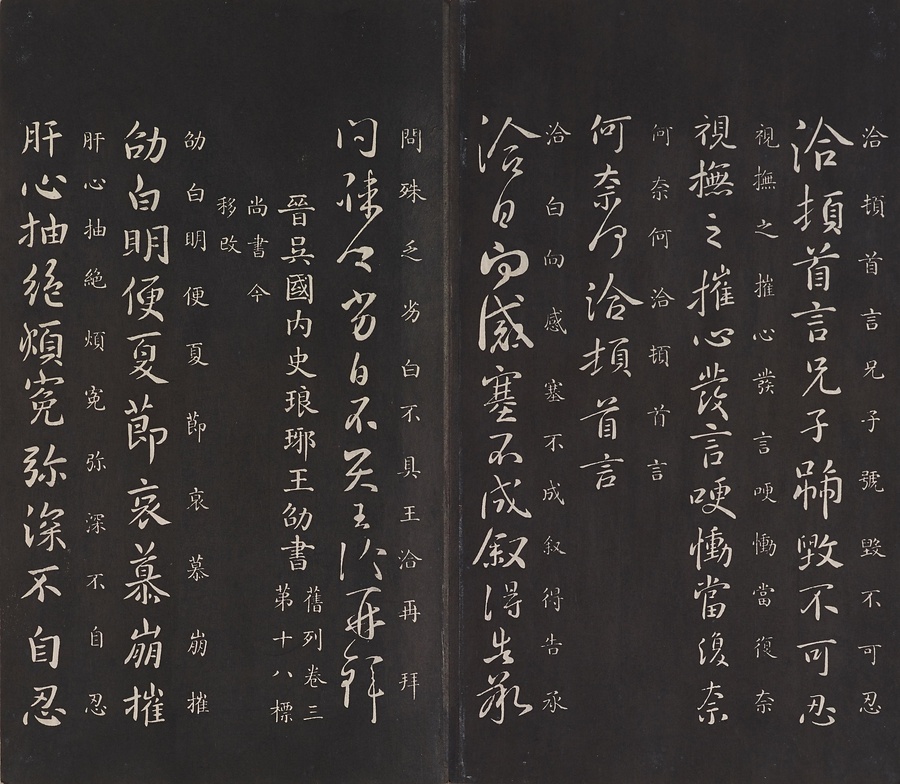 洽頓首言兄子號毀不可忍
洽頓首言兄子號毀不可忍
視撫之摧心發言哽慟當復奈
視撫之摧心發言哽慟當復奈
何奈何洽頓首言
何奈何洽頓首言
洽白向感塞不成叙得告承
洽白向感塞不成叙得告承
問殊乏劣白不具王洽再拜
問殊乏劣白不具王洽再拜
晉吳國内史琅瑘王劭書
舊列卷三
第十八標
尚書今
移改
劭白明便夏節哀慕崩摧
劭白明便夏節哀慕崩摧
肝心抽絕煩寃弥深不自忍
肝心抽絕煩寃弥深不自忍